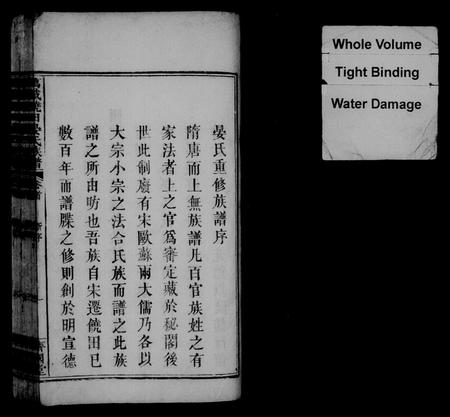 晏氏重修族譜序
隋唐而上無族譜凡百官族姓之有
家法者上之官為審定藏於秘閣後
世此制廢有宋歐蘇兩大儒乃各以
大宗小宗之法合氏族而譜之此族
譜之所由昉也吾族自宋遷饒田已
數百年而譜牒之修則創於明宣德
Whole Volume
Tight Binding
Water Damage